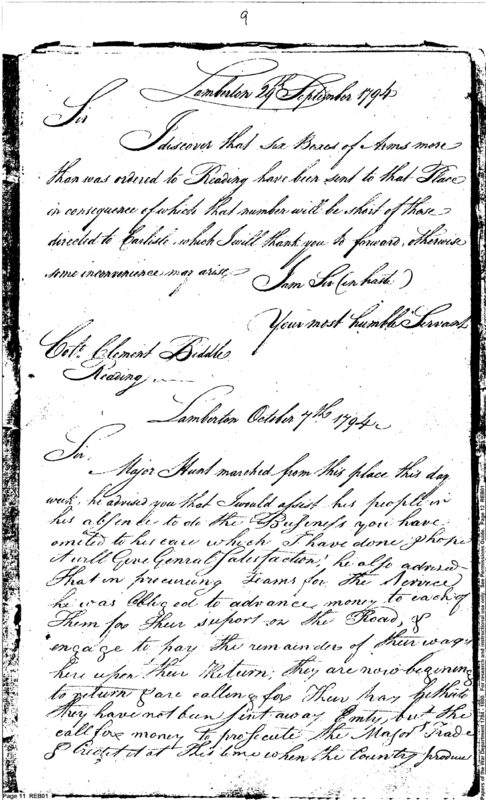 9
Lamberton 29th September 1794
Sir
I discover that six Boxes of Arms more
than was ordered to Reading have been sent to that Place
in consequence of which that number will be short of those
directed to Carlisle which I will thank you to forward, otherwise
some inconvenience may arise
I am Sir (in haste)
Your most humble Servant
Colo. Clement Biddle
Reading
Lamberton October 7th 1794
Sir,
Major Hunt marched from this place this day
week; he advised you that I would assist his people in
his absence to do the Business you have
omited to his care which I have done, I hope
it will Give Genral Satesfaction, he also advised
that in procuring Teams for the Service
he was Obliged to advance money to each of
Them for their suport on the Road, &
engage to pay the remainders of their wages
here upon their Return; they are now begining
to return & are calling for Their pay hitherto
they have not been sent away Emty, but the
call for money to prosecute the Major Trade
& Credit it at This time when the Country produce
Page 11 REB01